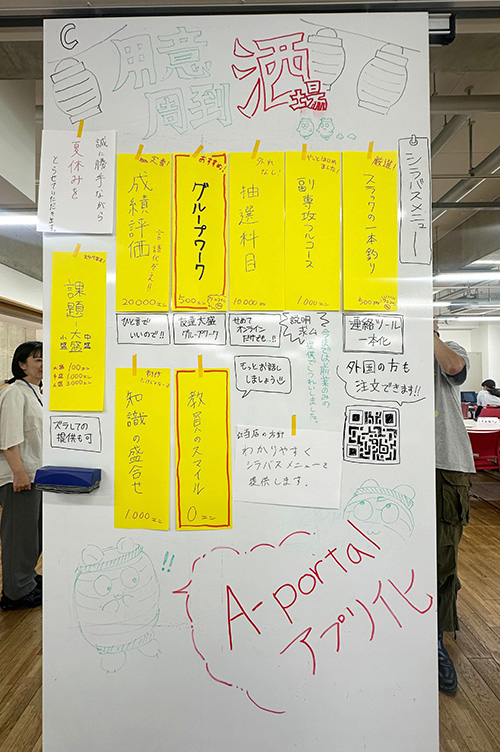 C
用意
周到
酒場
誠に勝手ながら
夏休みを
とらせていただきます。
シラバスメニュー
厳選!
スラックの一本釣り
500円
やっとはじめました!
副専攻フルコース
1,000エン
外れなし!
抽選科目
10,000エン
おすすめ!
グループワーク
500エン
定番!
成績評価
言語化が必要!!
20000エン
課題
大盛
中盛
小盛
小盛 100エン
中盛 1,000エン
大盛 3,000エン
ズラしての
提供も可
ひと言で
いいので!!
友達大盛
グループワーク
せめて
オンライン
だけでも…!!
説明
求ム
連絡ツール
一本化
外国の方も
注文できます!!
もっとお話し
しましょう
知識の盛合せ
1,000エン
教員のスマイル
0エン
当店の方針
わかりやすく
シラバスメニューを
提供します。
!!
A-portal
アプリ化